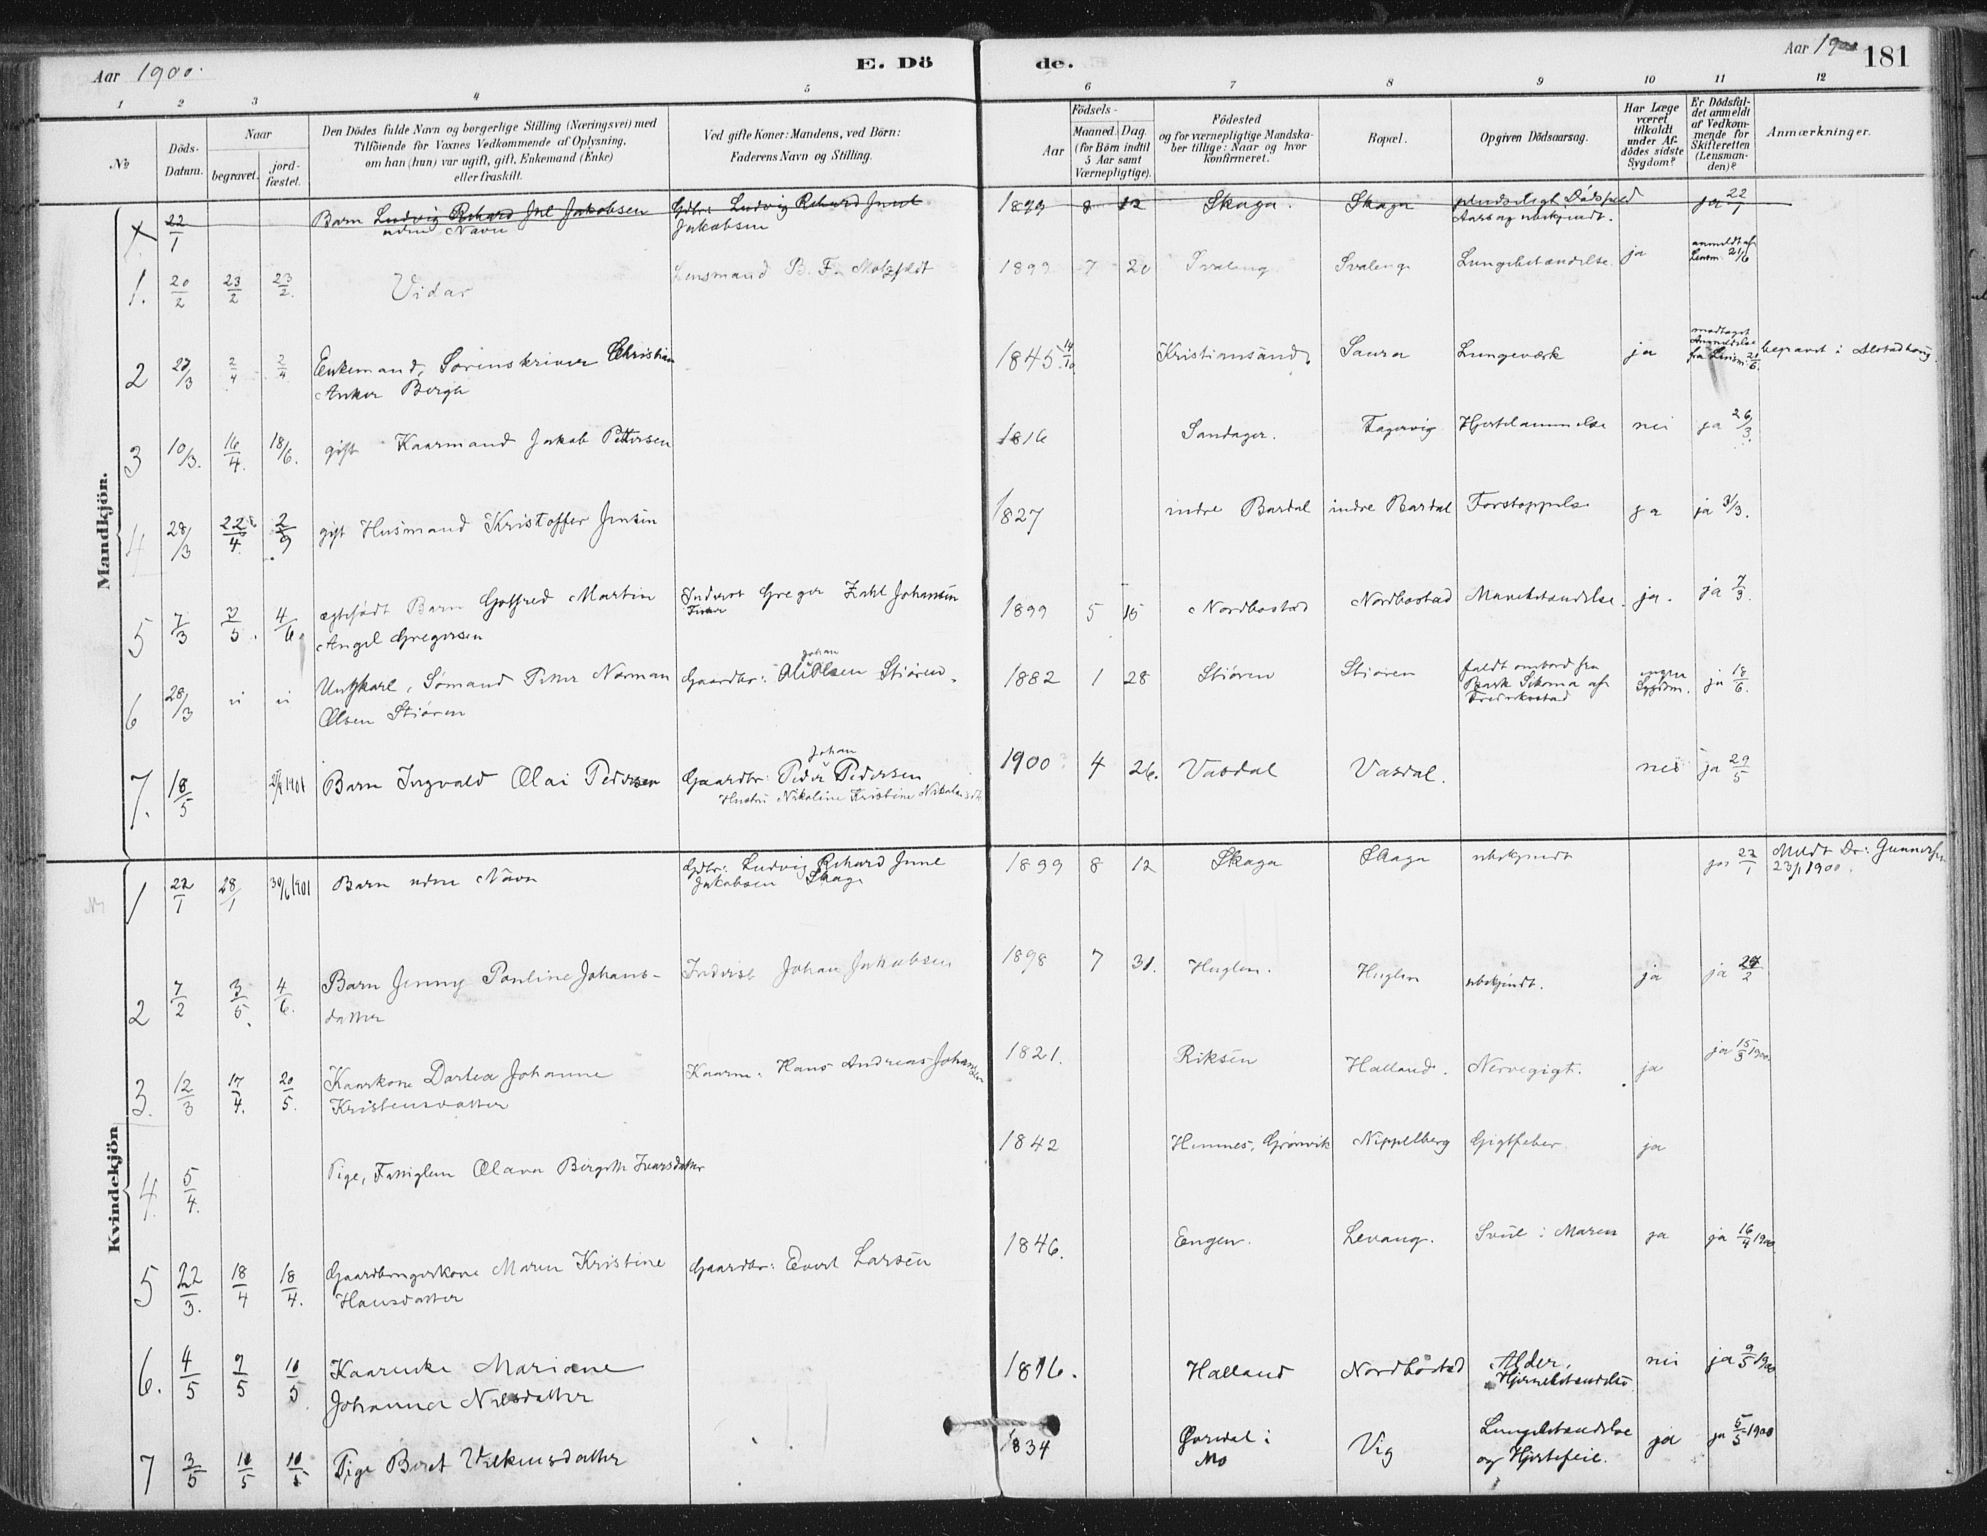 Aar 1900.
E. Dö
de.
Aar 1900
181
1 2 3 4 5 6 7 8 9 10 11 12
No
Döds-Datum.
Naar
begravet.
jord-fæstet.
Den Dödes fulde Navn og borgerlige Stilling (Næringsvei) med
Tilföiende for Voxnes Vedkommende af Oplysning,
om han (hun) var ugift, gift, Enkemand (Enke)
eller fraskilt.
Ved gifte Koner: Mandens, ved Börn:
Faderens Navn og Stilling.
Födsels-
Aar
Maaned. Dag.
(for Börn indtil
5 Aar samt
Værnepligtige).
Födested
og for værnepligtige Mandska-
ber tillige: Naar og hvor
konfirmeret.
Bopæl.
Opgiven Dödsaarsag.
Har Læge
været
tilkaldt
under Af-
dödes sidste
Sygdom?
Er Dödsfal-
det anmeldt
af Vedkom-
mende for
Skifteretten
(Lensman-
den)?
Anmærkninger.
Mandkjön.
22/1 Barn Ludvig Rikard Jul Jakobsen Gdbr: Ludvig Rikard Juul 1899 8 12 Skaga. Skaga pludseligt Dødsfald ja 22/1
uden Navn Jakobsen Aarsag ubekjendt.
1. 20/2 23/2 23/2 Vidar Lensmand B. F. Motzfeldt 1899 7 20 Svaleng Svaleng Lungebetændelse ja anmeldt af Lensm. 21/6
2 27/3 2/4 2/4 Enkemand, Sorenskriver Christian 1845 14/10 Kristiansand. Saura Lungeværk ja modtaget Anmeldelse fra Lensm. 21/6 begravet i Alstadhoug.
Anker Bergh
3 10/3. 16/4. 18/6. gift Kaarmand Jakob Pettersen 1816 Sandager. Fagervig Hjertelammelse nei ja 26/3.
4 28/3 22/4. 2/9 gift Husmand Kristoffer Jensen 1827 indre Bardal indre Bardal Forstoppelse ja ja 3/3.
5 7/3 3/5. 4/6. ægtefødt Barn Gotfred Martin Inderst Greger Zahl Johansen 1899 5 15 Nordbostad Nordbostad Mavebetændelse. ja. ja 7/3.
Angel Gregersen Fisker
6 28/3 Ungkarl, Sømand Peter Norman Gaardbr: Johan Ol. Olsen Stjøren. 1882 1 28 Stjøren Stjøren faldt ombord fra ingen Sygdom. ja 18/6.
Olsen Stjøren Bark Sikoma af
Fredrikstad
7. 18/5 1901 Barn Ingvald Olai Pedersen Gaardbr: Peder Johan Pedersen 1900 4 26. Vasdal Vasdal. nei ja 29/5
Hustru Nikoline Kristine Nikolaisd.
Kvindekjön
1 22/1 28/1 30/6 1901 Barn uden Navn Gdbr: Ludvig Rikard June 1899 8 12 Skaga Skaga ubekjendt ja 22/1 Meldt Dr: Gunnersen
Jakobsen Skaga 23/1 1900.
2 7/2 3/5. 4/6. Barn Jenny Pauline Johans- Inderst Johan Jakobsen 1898 7 31. Huglen. Huglen ubekjendt. ja ja
datter
3. 12/3 17/4. 20/5. Kaarkone Dortea Johanne Kaarm. Hans Andreas Johansen 1821. Riksen Halland. Nervegigt. ja ja 15/3 1900
Kristensdatter
4. 5/4. Pige, Fattiglem Olava Birgitte Ivarsdatter 1842 Hemnes, Grønvik Nippelberg Gigtfeber. ja
5 22/3. 18/4 18/4. Gaardbrugerkone Maren Kristine Gaardbr: Evert Larsen 1846. Engen. Levang. Svul i Maven ja ja 16/4 1900
Hansdatter
6. 4/5 9/5 10/5 Kaarenke Mariane 1816. Halland Nordbostad Alder, nei ja 9/5 1900
Johanna Nilsdatter Hjernebetændelse
7 3/5 10/5 10/5 Pige Beret Vilkensdatter 1834 Øvredal i Mo Vig Lungebetændelse ja ja 5/5 1900
og Hjertefeil.